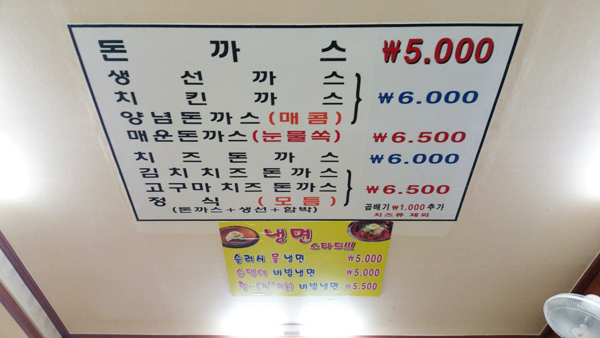 돈까스 ₩5.000
생선까스
치킨까스 ₩6.000
양념돈까스(매콤)
매운돈까스(눈물쏙) ₩6.500
치즈돈까스 ₩6.000
김치치즈돈까스
고구마치즈돈까스 ₩6.500
정식(모듬)
(돈까스+생선+함박)
곱배기 ₩1.000 추가
치즈류 제외
냉면
스타드!!!
물 냉면 ₩5.000
비빔냉면 ₩5.000
비빔냉면 ₩5.500